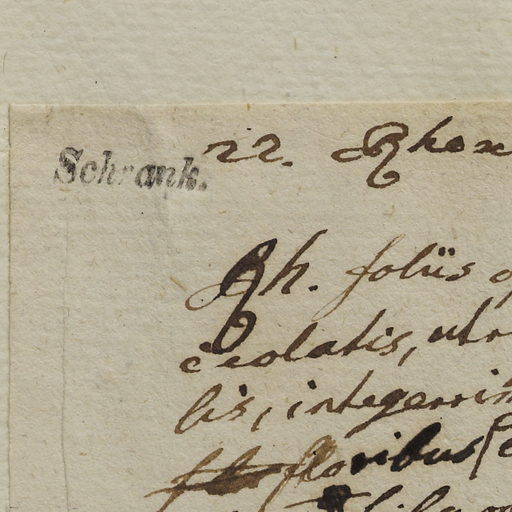 Schrank.
22. Rhox
Rh. foliis
ceolatis, utr
lis, integerrim
floribus